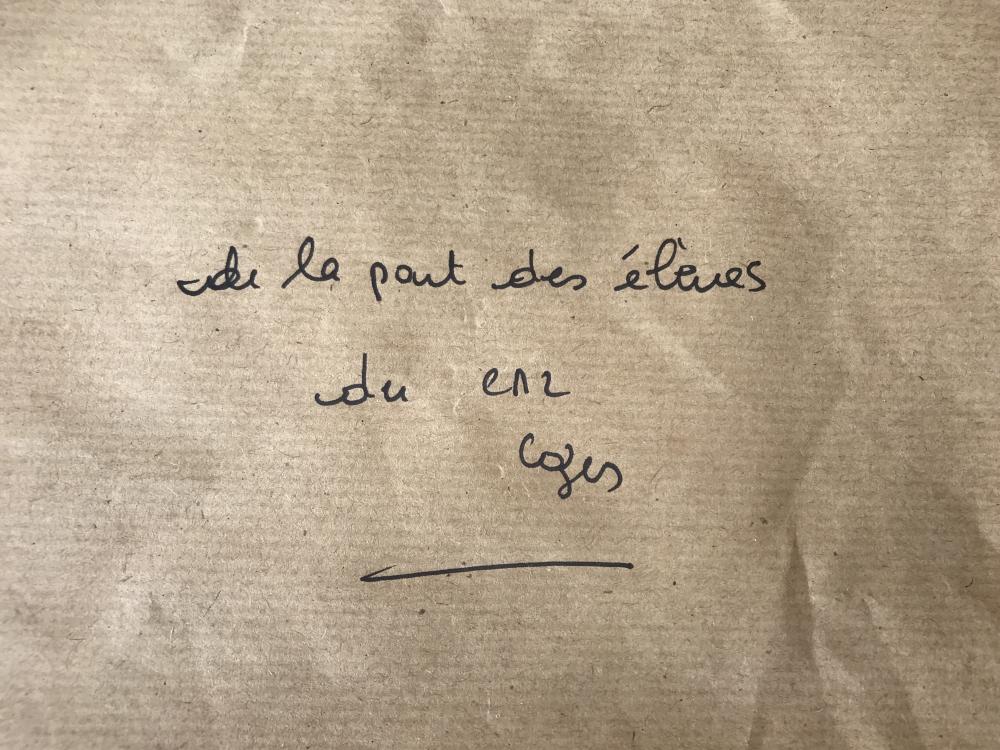 de la part des élèves
du CM2
Cozes